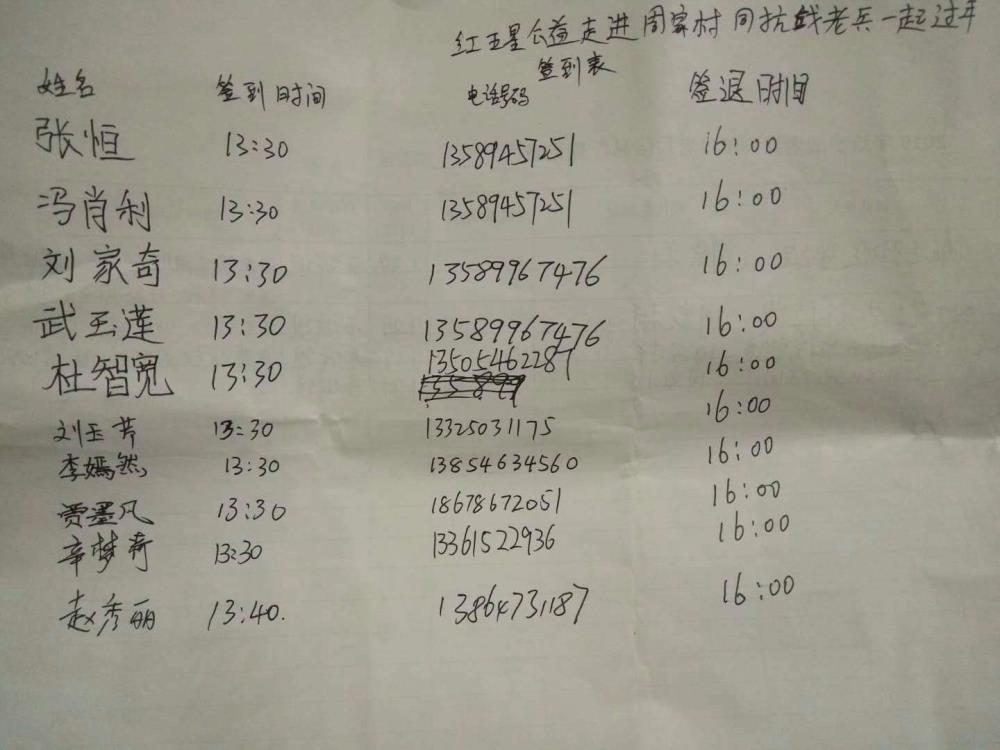 红五星公益走进周家村同抗战老兵一起过年
签到表
姓名 签到时间 电话号码 签退时间
张恒 13:30 13589457251 16:00
冯肖利 13:30 13589457251 16:00
刘家奇 13:30 13589967476 16:00
武玉莲 13:30 13589967476 16:00
杜智宽 13:30 13505462287 16:00
刘玉芳 13:30 13325031175 16:00
李嫣然 13:30 13854634560 16:00
贾墨凤 13:30 18678672051 16:00
辛梦奇 13:30 13361522936 16:00
赵秀丽 13:40. 13864731187 16:00